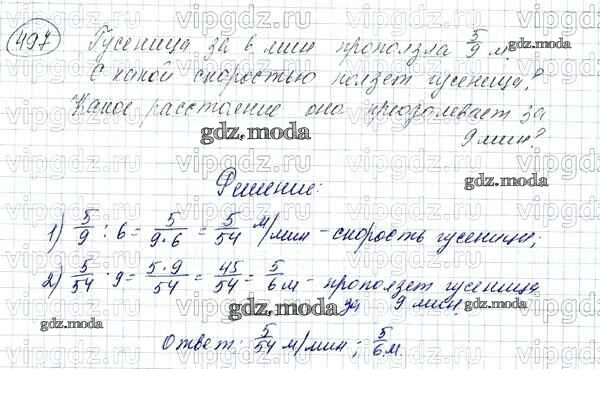 497
Гусеница за 6 мин проползла 5/9 м.
С какой скоростью ползет гусеница?
Какое расстояние она преодолевает за
9 мин?
Решение:
1) 5/9 : 6 = 5/(9·6) = 5/54 м/мин - скорость гусеницы;
2) 5/54 · 9 = (5·9)/54 = 45/54 = 5/6 м - проползет гусеница
за 9 мин.
Ответ: 5/54 м/мин; 5/6 м.
vipgdz.ru
gdz.moda